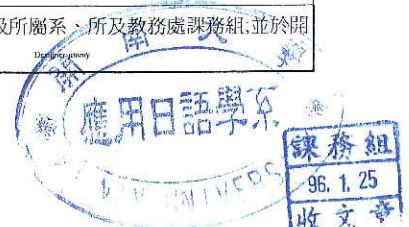 級所屬系、所及教務處課務組;並於開
開南大
應用日語學系
課務組
96. 1. 25
收文章